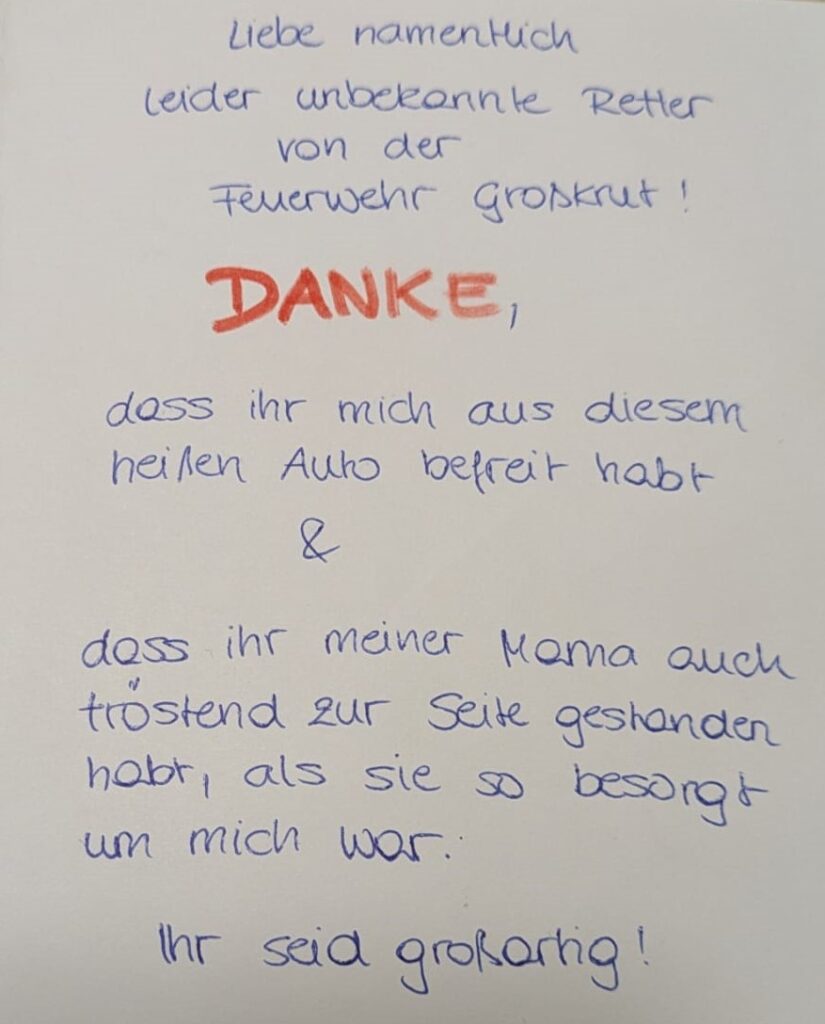 Liebe namentlich
leider unbekannte Retter
von der
Feuerwehr Großkrut!
DANKE,
dass ihr mich aus diesem
heißen Auto befreit habt
&
dass ihr meiner Mama auch
tröstend zur Seite gestanden
habt, als sie so besorgt
um mich war.
Ihr seid großartig!